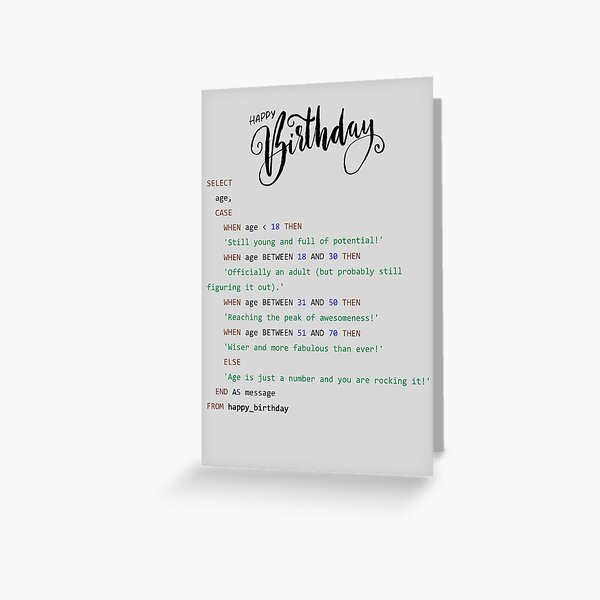 HAPPY
Birthday
SELECT
age,
CASE
WHEN age < 18 THEN
'Still young and full of potential!'
WHEN age BETWEEN 18 AND 30 THEN
'Officially an adult (but probably still
figuring it out).'
WHEN age BETWEEN 31 AND 50 THEN
'Reaching the peak of awesomeness!'
WHEN age BETWEEN 51 AND 70 THEN
'Wiser and more fabulous than ever!'
ELSE
'Age is just a number and you are rocking it!'
END AS message
FROM happy_birthday